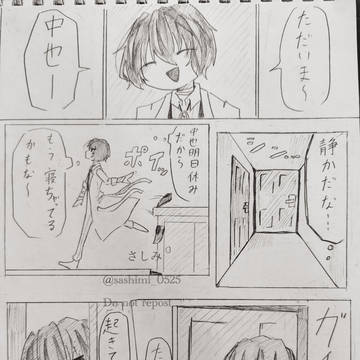 ただいま〜
中也ー
静かだな…
中也明日休み
だから
ポイッ
もう寝ちゃってる
かもな〜
さしみ
@sashimi_0525
Do not repost
ガ
た
起きて